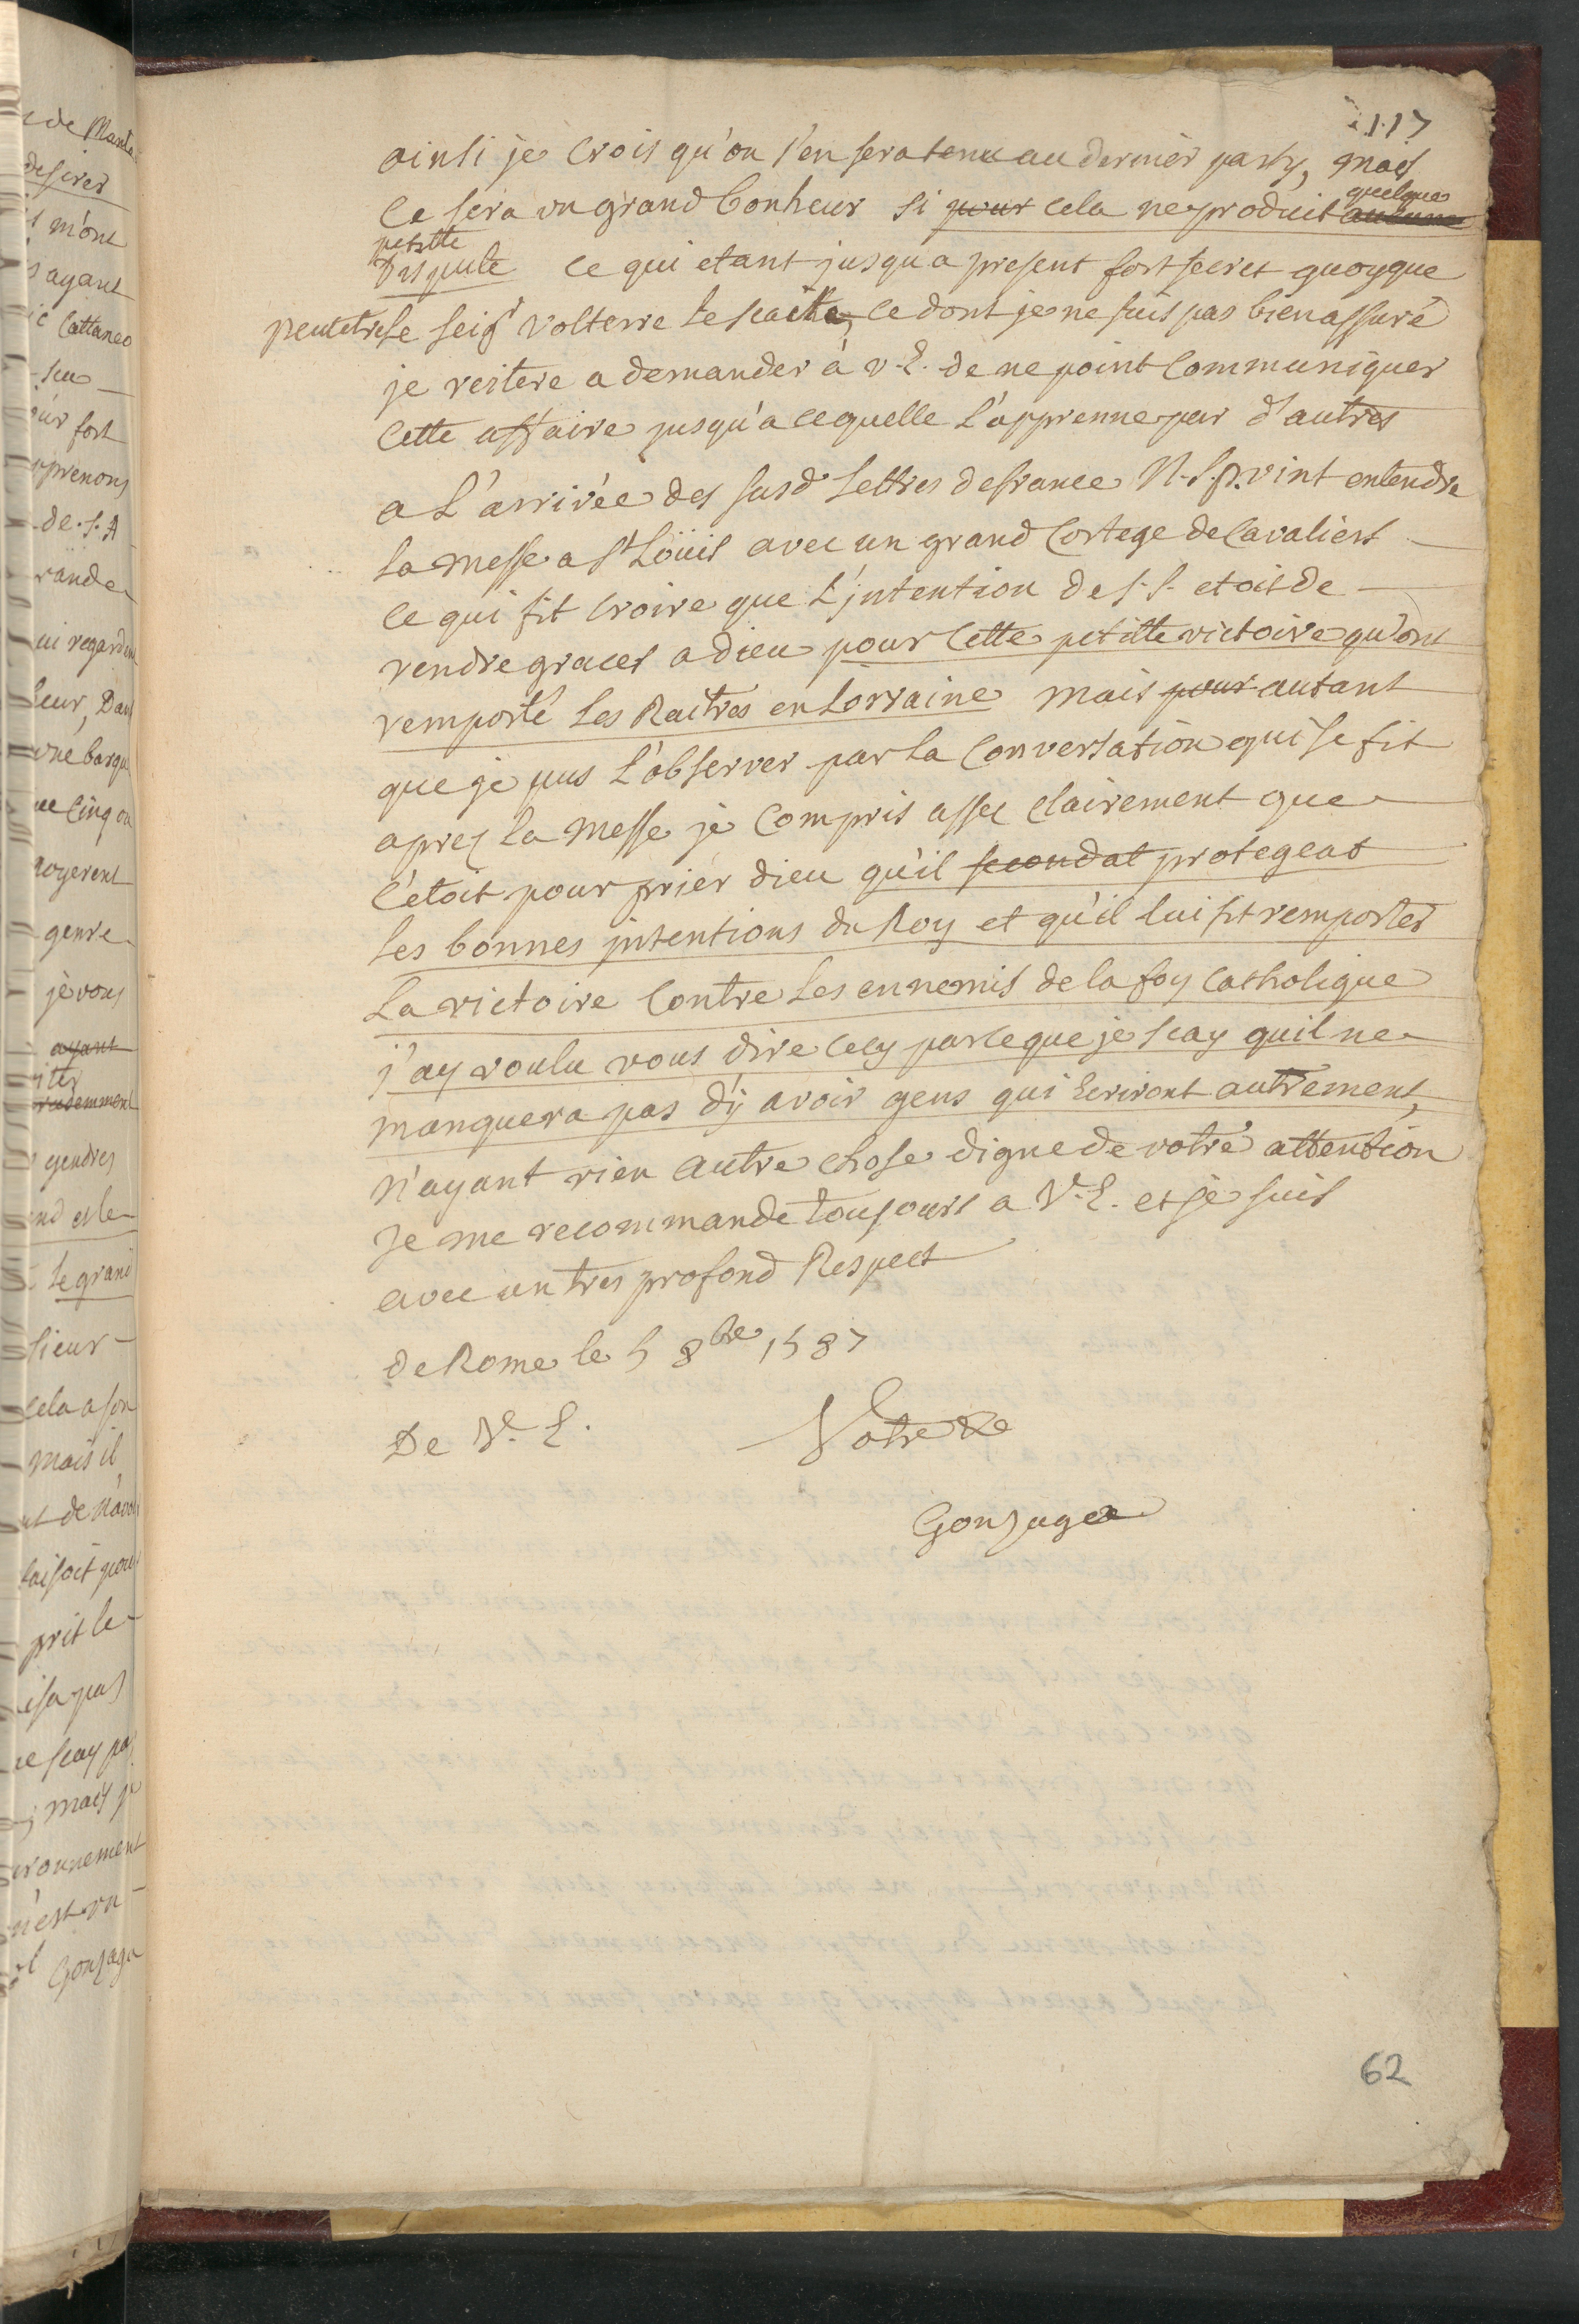 117
ainsi je crois qu'on s'en sera tenu au dernier party, mais
quelque
ce sera un grand bonheur si pour cela ne produit aucune
petitte
dispute ce qui etant jusqu'a present fort secret quoyque
peutetre le seigr volterre le scaite, ce dont je ne suis pas bien assuré
je reitere a demander à v. E. de ne point communiquer
cette affaire jusqu'a ce quelle l'apprenne par d'autres
a L'arrivée des susd lettres de france N. S. P. vint entendre
la messe a St Loüis avec un grand cortege de cavaliers
ce qui fit croire que L'jntention de S. S. etoit de
rendre graces a dieu pour cette petitte victoire qu'ont
remporté les Raitres en Lorraine mais pour autant
que je pus l'observer par la conversation qui se fit
aprez la messe je compris assez clairement que
c'etoit pour prier dieu qu'il secondat protegeat
les bonnes jntentions du Roy et qu'il lui fit remporter
La victoire contre les ennemis de la foy catholique
j'ay voulu vous dire cecy parce que je scay quil ne
manquera pas d'y avoir gens qui ecriront autrement,
n'ayant rien autre chose digne de votre attention
Je me recommande toujours a V. E. et je suis
avec un tres profond Respect
de Rome le 5 8bre 1587
De V. E. Votre &c
Gonzague
62
de Manto
desirer
m'ont
ayant
Cattaneo
fort
aprenons
de. S. A
grande
qui regard
leur, Dan
une barqu
cinq ou
genre
je vous
ayant
gendres
le grand
sieur
cela a son
mais il
prit le
scay pas
mais je
n'est un
Gonzague